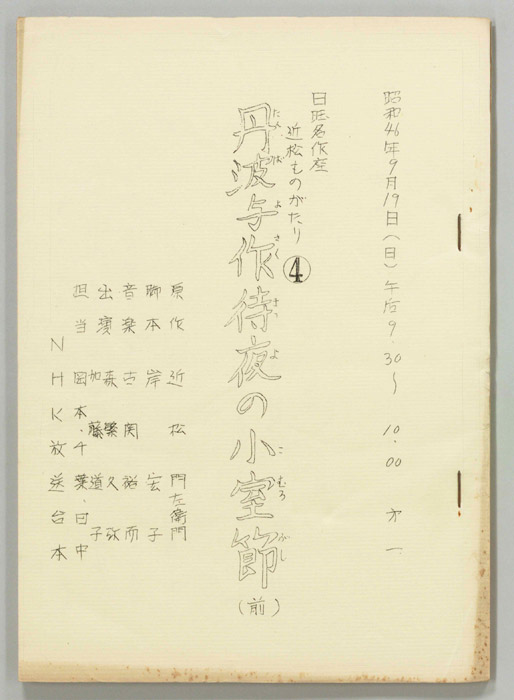 昭和46年9月19日(日)午后9.30〜10.00 才一
日曜名作座
近松ものがたり④
丹波与作待夜の小室節(前)
たんばよさくまつよこむろぶし
原作 近松門左衛門
脚本 岸宏子
音楽 古関裕而
出演 森繁久弥
加藤道子
担当 岡本・千葉・田中
NHK放送台本